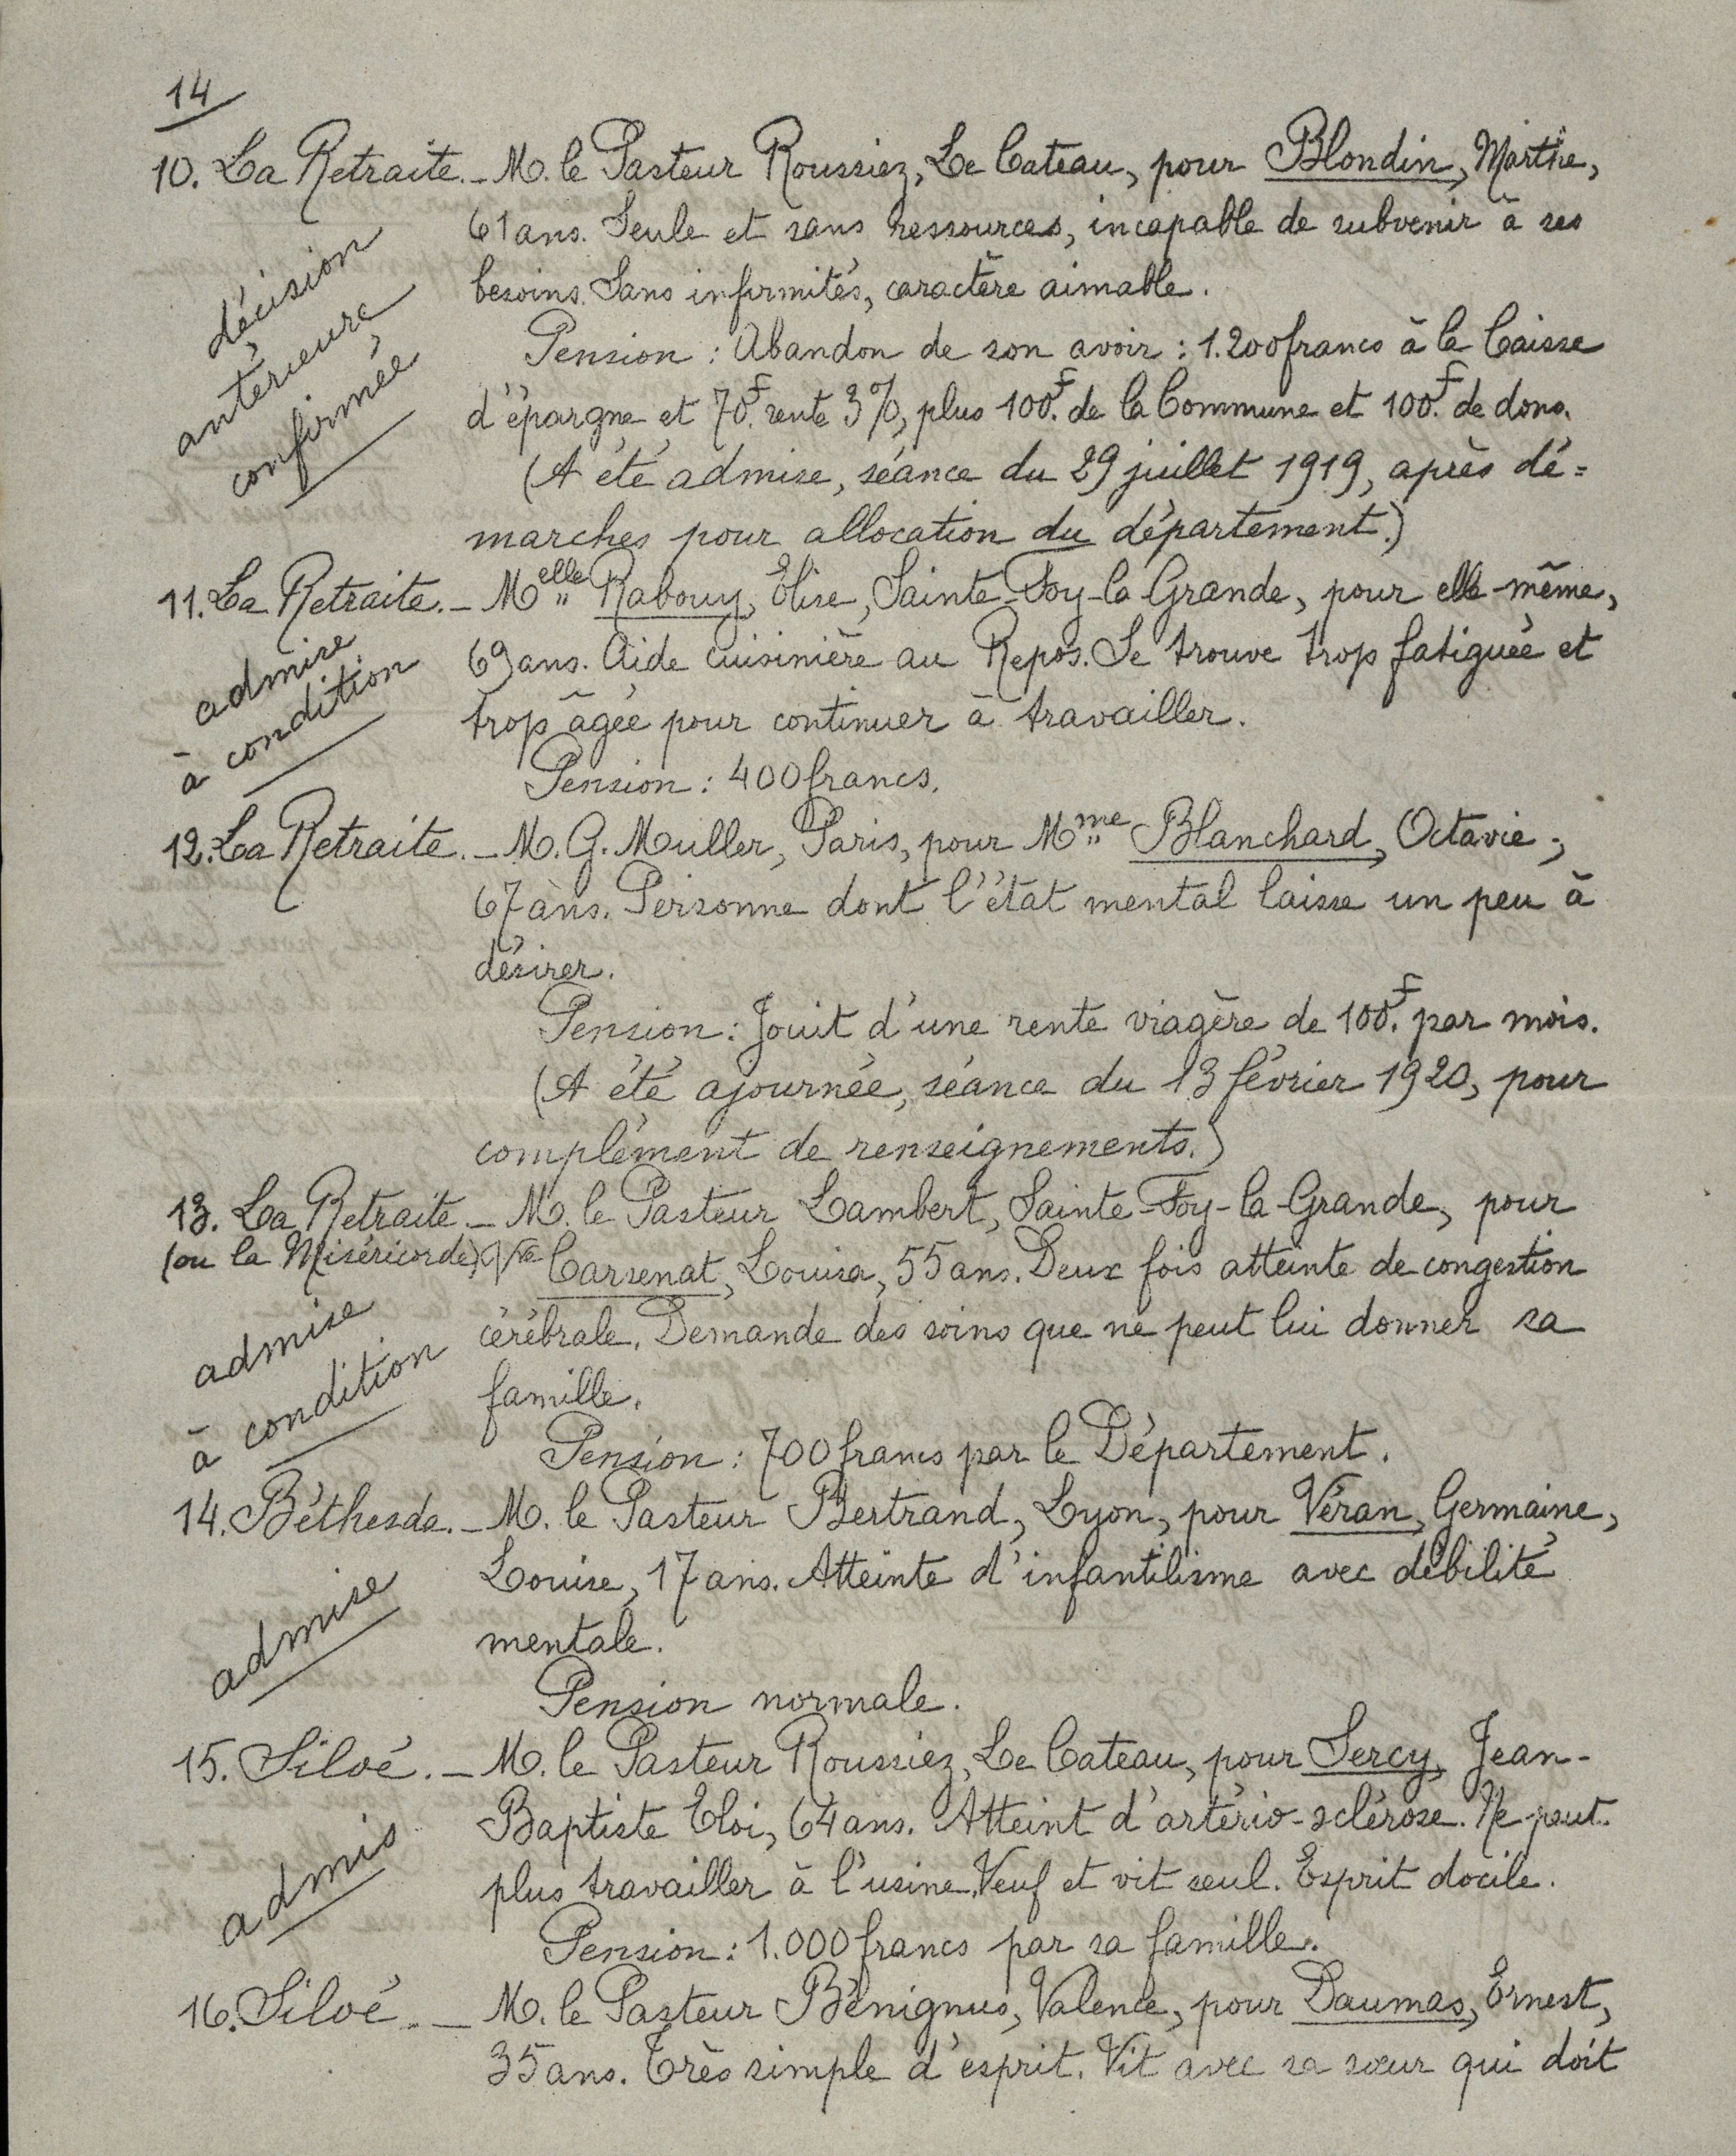 14
10. La Retraite. _ M. le Pasteur Roussiez, Le Cateau, pour Blondin, Marthe,
61 ans. Seule et sans ressources, incapable de subvenir à ses
besoins. Sans infirmités, caractère aimable.
Pension : Abandon de son avoir : 1.200 francs à la Caisse
d'épargne et 70.f rente 3%, plus 100.f de la Commune et 100.f de dons.
(A été admise, séance du 29 juillet 1919, après dé=
marches pour allocation du département.)
décision
antérieure
confirmée
11. La Retraite. _ Melle Rabouy, Élise, Sainte-Foy-la Grande, pour elle-même,
69 ans. Aide cuisinière au Repos. Se trouve trop fatiguée et
trop âgée pour continuer à travailler.
Pension : 400 francs.
admise
à condition
12. La Retraite. _ M. G. Muller, Paris, pour Mme Blanchard, Octavie,
67 ans. Personne dont l'état mental laisse un peu à
désirer.
Pension : Jouit d'une rente viagère de 100.f par mois.
(A été ajournée, séance du 13 février 1920, pour
complément de renseignements.)
13. La Retraite _ M. le Pasteur Lambert, Sainte-Foy-la-Grande, pour
(ou la Miséricorde) Vve Carsenat, Louisa, 55 ans. Deux fois atteinte de congestion
cérébrale. Demande des soins que ne peut lui donner sa
famille.
Pension : 700 francs par le Département.
admise
à condition
14. Béthesda. _ M. le Pasteur Bertrand, Lyon, pour Véran, Germaine,
Louise, 17 ans. Atteinte d'infantilisme avec débilité
mentale.
Pension normale.
admise
15. Siloé. _ M. le Pasteur Roussiez, Le Cateau, pour Sercy, Jean-
Baptiste Eloi, 64 ans. Atteint d'artério-sclérose. Ne peut
plus travailler à l'usine. Veuf et vit seul. Esprit docile.
Pension : 1.000 francs par sa famille.
admis
16. Siloé. _ M. le Pasteur Bénignus, Valence, pour Daumas, Ernest,
35 ans. Très simple d'esprit. Vit avec sa sœur qui doit